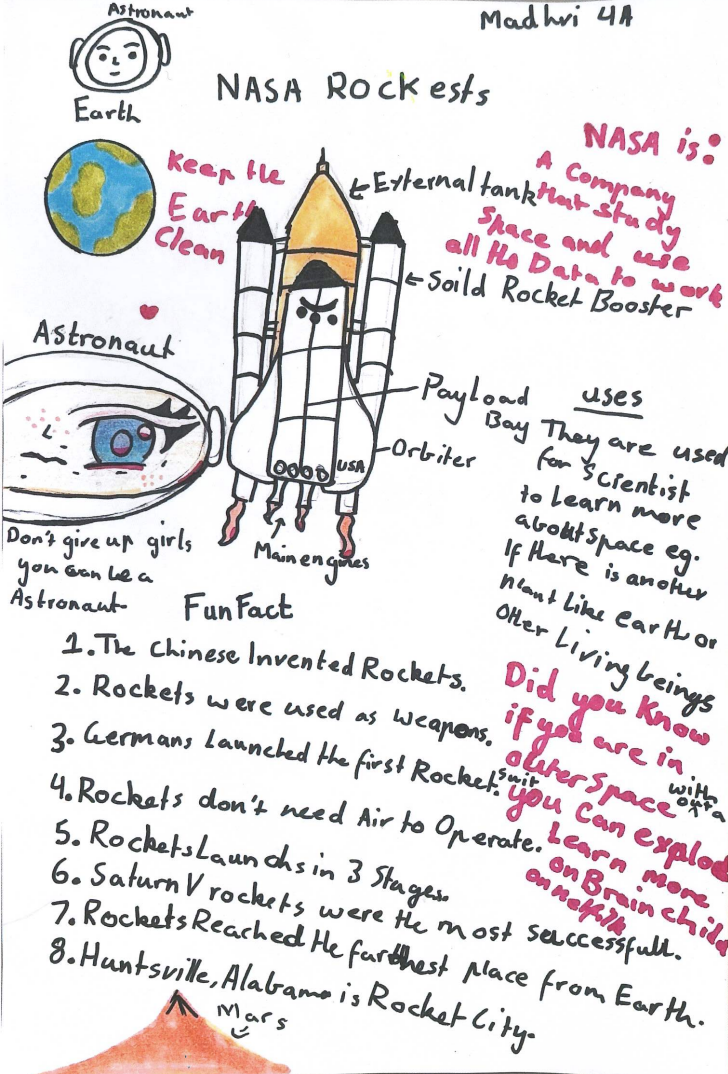 Astronaut
Madhri 4A
Earth
NASA Rockests
NASA is:
A Company
that study
Space and use
all the Data to work
Keep the
Earth
Clean
External tank
Soild Rocket Booster
Astronaut
Payload
Bay
Orbiter
USA
Main engines
uses
They are used
for Scientist
to Learn more
about Space eg.
If there is another
Like earth or
Other Living beings
Don't give up girls
you can be a
Astronaut
Fun Fact
1. The Chinese Invented Rockets.
2. Rockets were used as weapons.
3. Germans Launched the first Rocket.
4. Rockets don't need Air to Operate.
5. Rockets Launchs in 3 Stages.
6. Saturn V rockets were the most successfull.
7. Rockets Reached the farthest place from Earth.
8. Huntsville, Alabama is Rocket City.
Did you Know
if you are in
outer Space with
out a
suit
you can explod
Learn more
on Brain child
on netflix
Mars